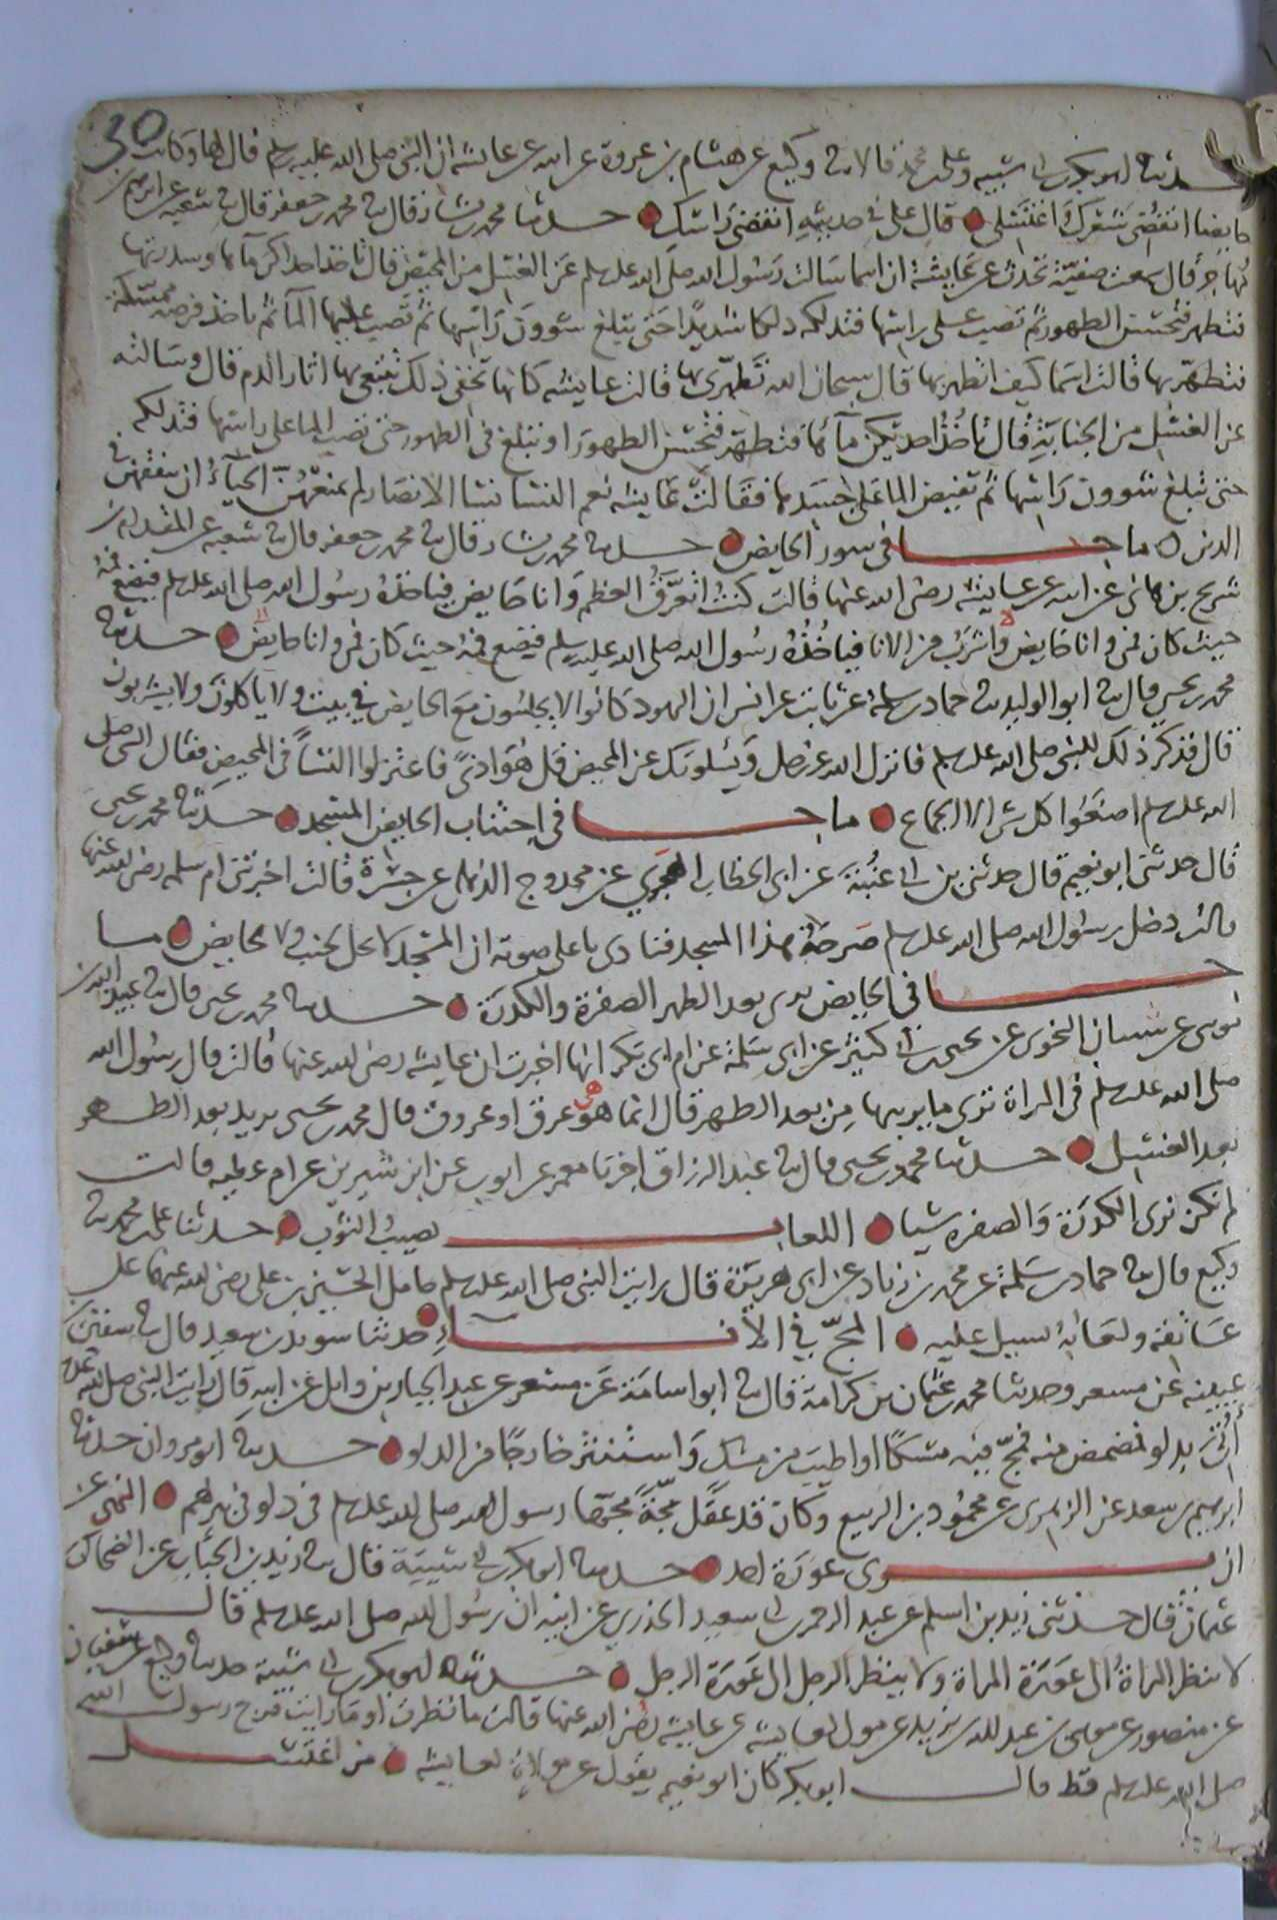 30
حدثنا ابو بكر بن ابي شيبه وعلي بن محمد قالا ثنا وكيع عن هشام بن عروة عن ابيه عن عائشه ان النبي صلى الله عليه وسلم قال لها وكانت
حايضا انقضي شعرك واغتسلي قال علي في حديثه انقضي راسك حدثنا محمد بن بشار قال ثنا محمد بن جعفر قال ثنا شعبه عن ابرهيم بن
مهاجر قال سمعت صفية تحدث عن عايشة ان اسما سالت رسول الله صلى الله عليه وسلم عن الغسل من المحيض فقال تاخذ احداكن مآها وسدرتها
فتطهر فتحسن الطهور ثم تصب على راسها فتدلكه دلكا شديدا حتى يبلغ شوون راسها ثم تصب عليها المآ ثم تاخذ فرصه ممسكة
فتطهر بها قالت اسما كيف اتطهر بها قال سبحان الله تطهري بها قالت عايشه كانها تخفي ذلك تتبعي بها اثار الدم قال وسالته
عن الغسل من الجنابة فقال تاخذ احديكن مآها فتطهر فتحسن الطهور او تبلغ في الطهور حتى تصب الما على راسها فتدلكه
حتى تبلغ شوون راسها ثم تفيض الما على جسدها فقالت عايشه نعم النسا نسا الانصار لم يمنعهن الحيآء ان يتفقهن في
الدين ما جا في سور الحايض حدثنا محمد بن بشار قال ثنا محمد بن جعفر قال ثنا شعبه عن المقدام بن
شريح بن هانى عن ابيه عن عايشه رضي الله عنها قالت كنت اتعرق العظم وانا حايض فياخذه رسول الله صلى الله عليه وسلم فيضع فمه
حيث كان فمي وانا حايض واشرب من الانا فياخذه رسول الله صلى الله عليه وسلم فيضع فمه حيث كان فمي وانا حايض حدثنا
محمد بن يحيى قال ثنا ابو الوليد ثنا حماد بن سلمة عن ثابت عن انس ان اليهود كانوا لا يجلسون مع الحايض في بيت ولا ياكلون ولا يشربون
قال فذكر ذلك للنبي صلى الله عليه وسلم فانزل الله عز وجل ويسلونك عن المحيض قل هو اذى فاعتزلوا النسآ في المحيض فقال النبي صلى
الله عليه وسلم اصنعوا كل شي الا الجماع ما جا في اجتناب الحايض المسجد حدثنا محمد بن يحيى
قال حدثني ابو نعيم قال حدثني بن ابي غنية عن ابي الخطاب الهجري عن محدوج الذهلي عن جسرة قالت اخبرتني ام سلمه رضي الله عنها
قالت دخل رسول الله صلى الله عليه وسلم صرحة هذا المسجد فنادى باعلى صوته ان المسجد لا يحل لجنب ولا لحايض ما
جا في الحايض ترى بعد الطهر الصفرة والكدرة حدثنا محمد بن يحيى قال ثنا عبيد الله بن
موسى عن شيبان النحوي عن يحيى بن ابي كثير عن ابي سلمة عن ام ابي بكر انها اخبرت ان عايشه رضي الله عنها قالت قال رسول الله
صلى الله عليه وسلم في المراة ترى ما يريبها من بعد الطهر قال انما هو هي عرق او عروق قال محمد بن يحيى يريد بعد الطهر
بعد الغسل حدثنا محمد بن يحيى قال ثنا عبد الرزاق اخبرنا معمر عن ايوب عن ابن سيرين عن ام عطيه قالت
لم نكن نرى الكدرة والصفرة شيا اللعاب يصيب الثوب حدثنا علي بن محمد ثنا
وكيع قال ثنا حماد بن سلمة عن محمد بن زياد عن ابي هريرة قال رايت النبي صلى الله عليه وسلم حامل الحسين بن علي رضي الله عنهما على
عاتقه ولعابه يسيل عليه المج في الانا حدثنا سويد بن سعيد قال ثنا سفين بن
عيينه عن مسعر وحدثنا محمد بن عثمان بن كرامة قال ثنا ابو اسامة عن مسعر عن عبد الجبار بن وايل عن ابيه قال رايت النبي صلى الله عليه
أتي بدلو فمضمض منه فمج فيه مسكا او اطيب من مسك واستنثر خارجا من الدلو حدثنا ابو مروان حدثنا
ابرهيم بن سعد عن الزهري عن محمود بن الربيع وكان قد عقل مجة مجها رسول الله صلى الله عليه وسلم في دلو في بيرلهم النهي عن
ان يرى عورة اخيه حدثنا ابو بكر بن ابي شيبة قال ثنا زيد بن الحباب عن الضحاك بن
عثمان قال حدثني زيد بن اسلم عن عبد الرحمن بن ابي سعيد الخدري عن ابيه ان رسول الله صلى الله عليه وسلم قال
لا تنظر المراة الى عورة المراة ولا ينظر الرجل الى عورة الرجل حدثنا ابو بكر بن ابي شيبة حدثنا وكيع عن سفيان
عن منصور عن موسى بن عبد الله بن يزيد عن مولى لعايشه عن عايشة رضي الله عنها قالت ما نظرت او ما رايت فرج رسول الله
صلى الله عليه وسلم قط قال ابو بكر كان ابو نعيم يقول عن مولاة لعايشه من اغتسل